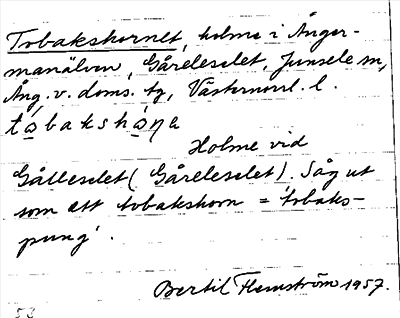 Tobakshornet, holme i Ånger-
manälven, Gåreleselet, Junsele sn,
Ång. v. doms. tg, Västernorrl. l.
tòbakshòṇa
Holme vid
Gålleselet (Gåreleselet). Såg ut
som ett tobakshorn = 'tobaks-
pung'.
Bertil Flemström 1957.
53